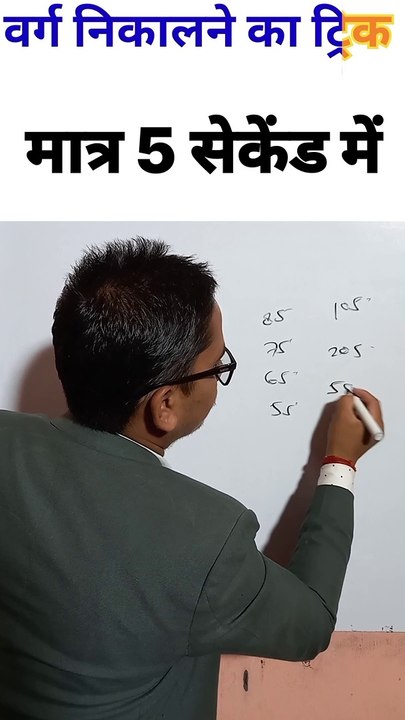 वर्ग निकालने का ट्रिक
मात्र 5 सेकेंड में
85
75
65
55
105
205